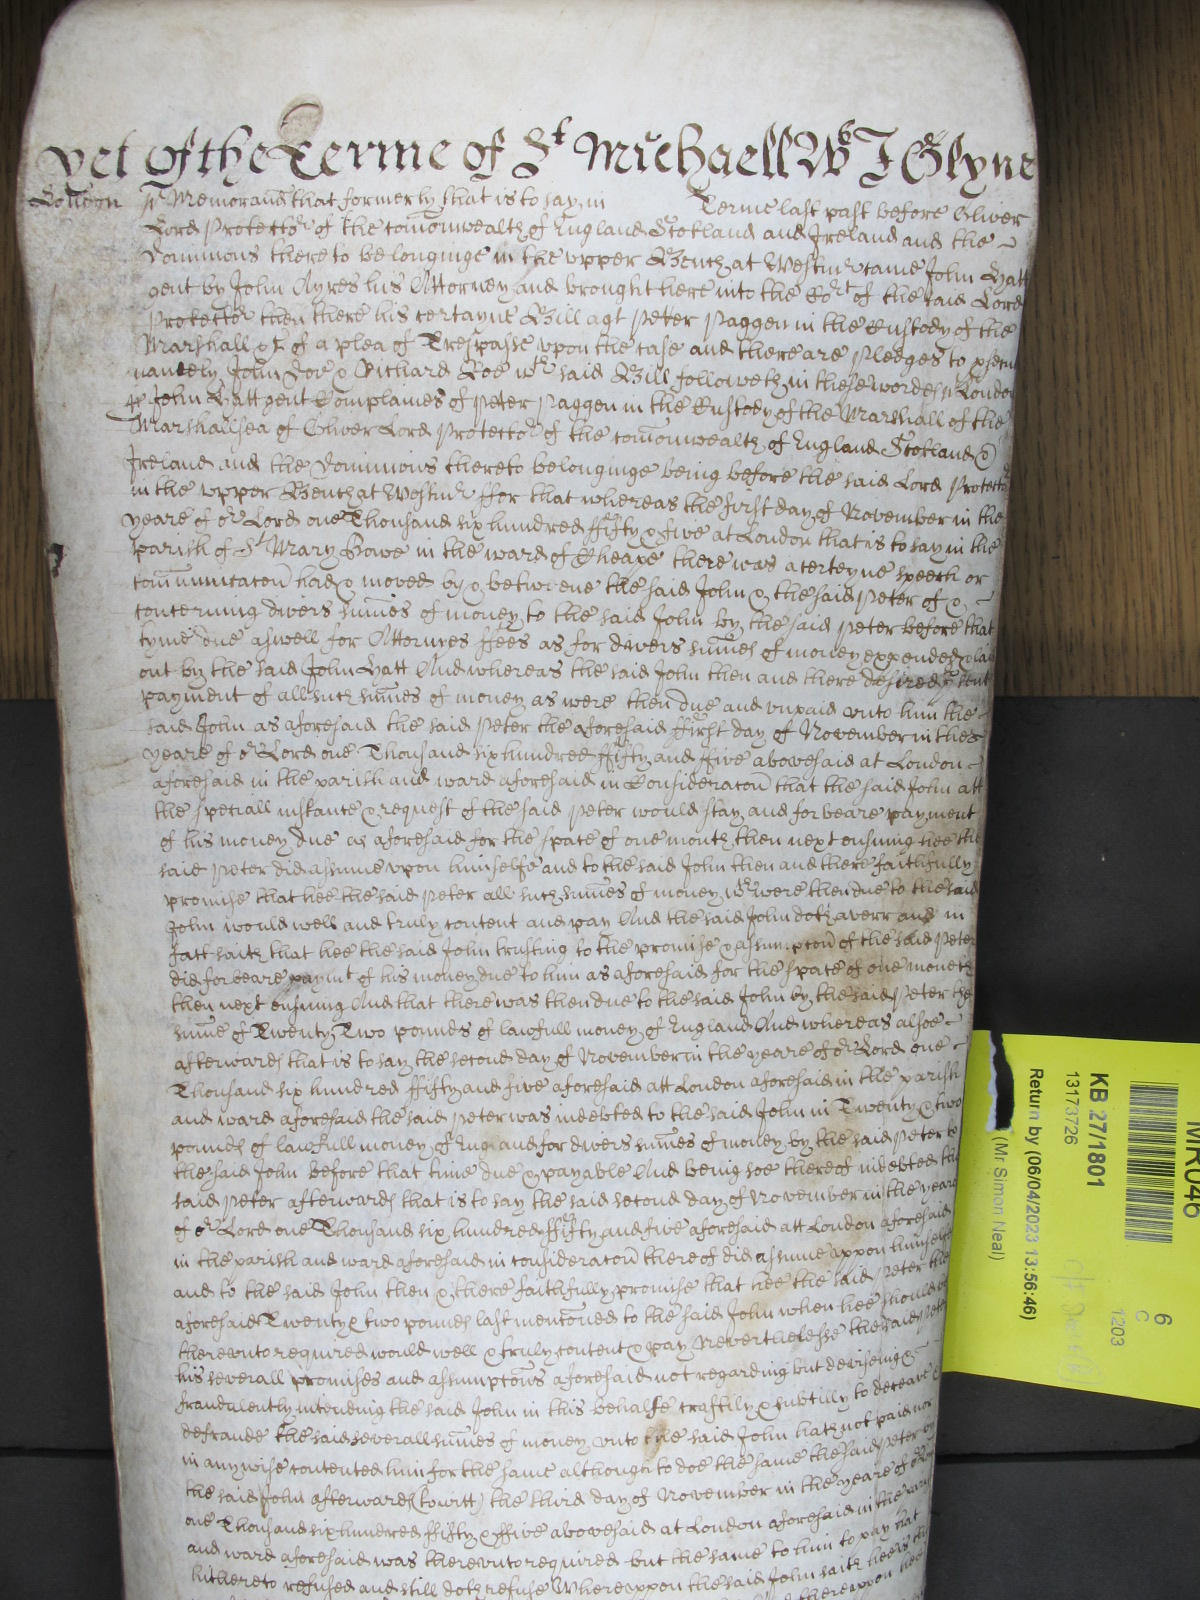 yet Of the Terme of St Michaell Wth J Glyne
London ss Memorand that formerly that is to say in Terme last past before Oliver
Lord Protector of the Comonwealth of England Scotland and Ireland and the
Dominions there to belonginge in the upper Bench at Westmr came John Hatt
gent by John Ayres his Attorney and brought here into the Cort of the said Lord
Protector then there his certayne Bill agt Peter Paggen in the Custody of the
Marshall &c of a plea of Trespasse upon the case and there are Pledges to
namely John Doe & Richard Roe wch said Bill followeth in these wordes ss London
ss John Hatt gent Complaines of Peter Paggen in the Custody of the Marshall of the
Marshallsea of Oliver Lord Protector of the Comonwealth of England Scotland &
Ireland and the Dominions thereto belonginge being before the said Lord Protector
in the upper Bench at Westmr ffor that whereas the first day of November in the
yeare of or Lord one Thousand six hundred ffifty & five at London that is to say in the
parish of St Mary Bowe in the ward of Cheape there was a certeyne speech or
comunicacon had & moved by & betweene the said John & the said Peter of &
concerning divers sumes of money to the said John by the said Peter before that
tyme due aswell for Attornyes ffees as for divers sumes of money expended & laid
out by the said John Hatt And whereas the said John then and there desired
payment of all such sumes of money as were then due and unpaid unto him the
said John as aforesaid the said Peter the aforesaid ffirst day of November in the
yeare of or Lord one Thousand six hundred ffifty and ffive abovesaid at London
aforesaid in the parish and ward aforesaid in Consideracon that the said John att
the speciall instance & request of the said Peter would stay and forbeare payment
of his money due as aforesaid for the space of one month then next ensuing hee the
said Peter did assume upon himselfe and to the said John then and there faithfully
promise that hee the said Peter all such sumes of money wch were then due to the said
John would well and truly content and pay And the said John doth averr and in
fact saith that hee the said John trusting to the promise & assumpcon of the said Peter
did forbeare paymt of his money due to him as aforesaid for the space of one moneth
then next ensuing And that there was then due to the said John by the said Peter the
sume of Twenty Two pounds of lawfull money of England And whereas alsoe
afterwards that is to say the second day of November in the yeare of or Lord one
Thousand six hundred ffifty and five aforesaid att London aforesaid in the parish
and ward aforesaid the said Peter was indebted to the said John in Twenty & two
pounds of lawfull money of Eng and for divers sumes of money by the said Peter to
the said John before that time due & payable And being soe thereof indebted the
said Peter afterwards that is to say the said second day of November in the yeare
of or Lord one Thousand six hundred ffifty and five aforesaid att London aforesaid
in the parish and ward aforesaid in consideracon thereof did assume uppon himselfe
and to the said John then & there faithfully promise that hee the said Peter the
aforesaid Twenty & two pounds last mentoned to the said John when hee should
thereunto required would well & truly content & pay Neverthelesse the said Peter
his severall promises and assumpcons aforesaid not regarding but deviseing &
fraudulently intending the said John in this behalfe craftily & subtilly to deceave &
defraude the said severall sumes of money unto the said John hath not paid nor
in any wise contented him for the same although to doe the same the said Peter by
the said John afterwards (to witt) the third day of November in the yeare of or Lord
one Thousand six hundred ffifty & ffive abovesaid at London aforesaid in the parish
and ward aforesaid was thereunto required but the same to him to pay hath
hitherto refused and still doth refuse Whereuppon the said John saith hee is
thereuppon hee
MR046
KB 27/1801
13173726
Return by (06/04/2023 13:56:46)
(Mr Simon Neal)
6
C
1203